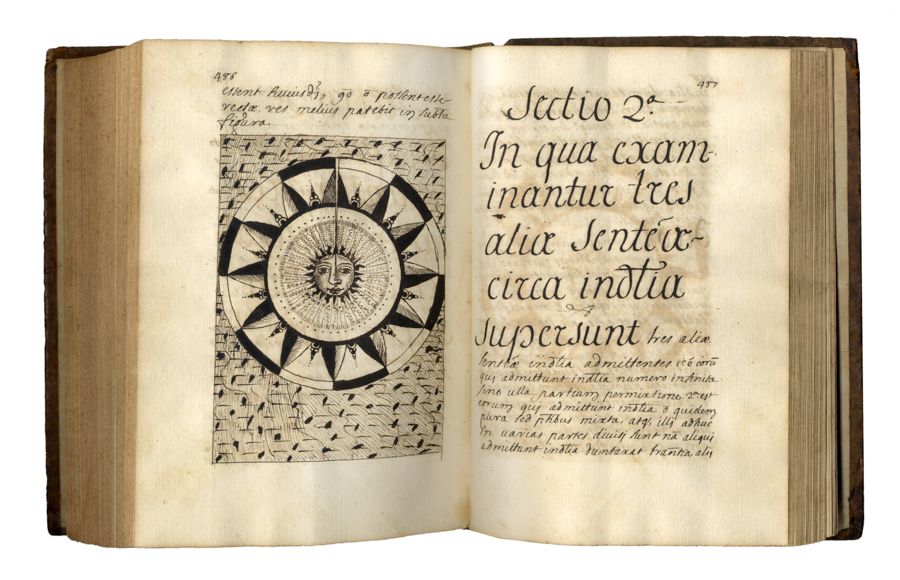 486
essent huiusd̃i, go õ possent esse
rectæ ves melius patebit in subta
figura
487
Sectio 2ª
In qua exam-
inantur tres
aliæ Senteãæ
circa indt̃ia
Supersunt tres aliæ
senteãæ indt̃ia admittentes
qui admittunt indt̃ia numero infinita
sine ulla partium permixtione. 2ª est
eorum qui admittunt indt̃ia õ quidem
pura sed ptibus mixta, atq, illi adhuc
in varias partes divisi sunt nã aliqui
admittunt indt̃ia duntaxat alii